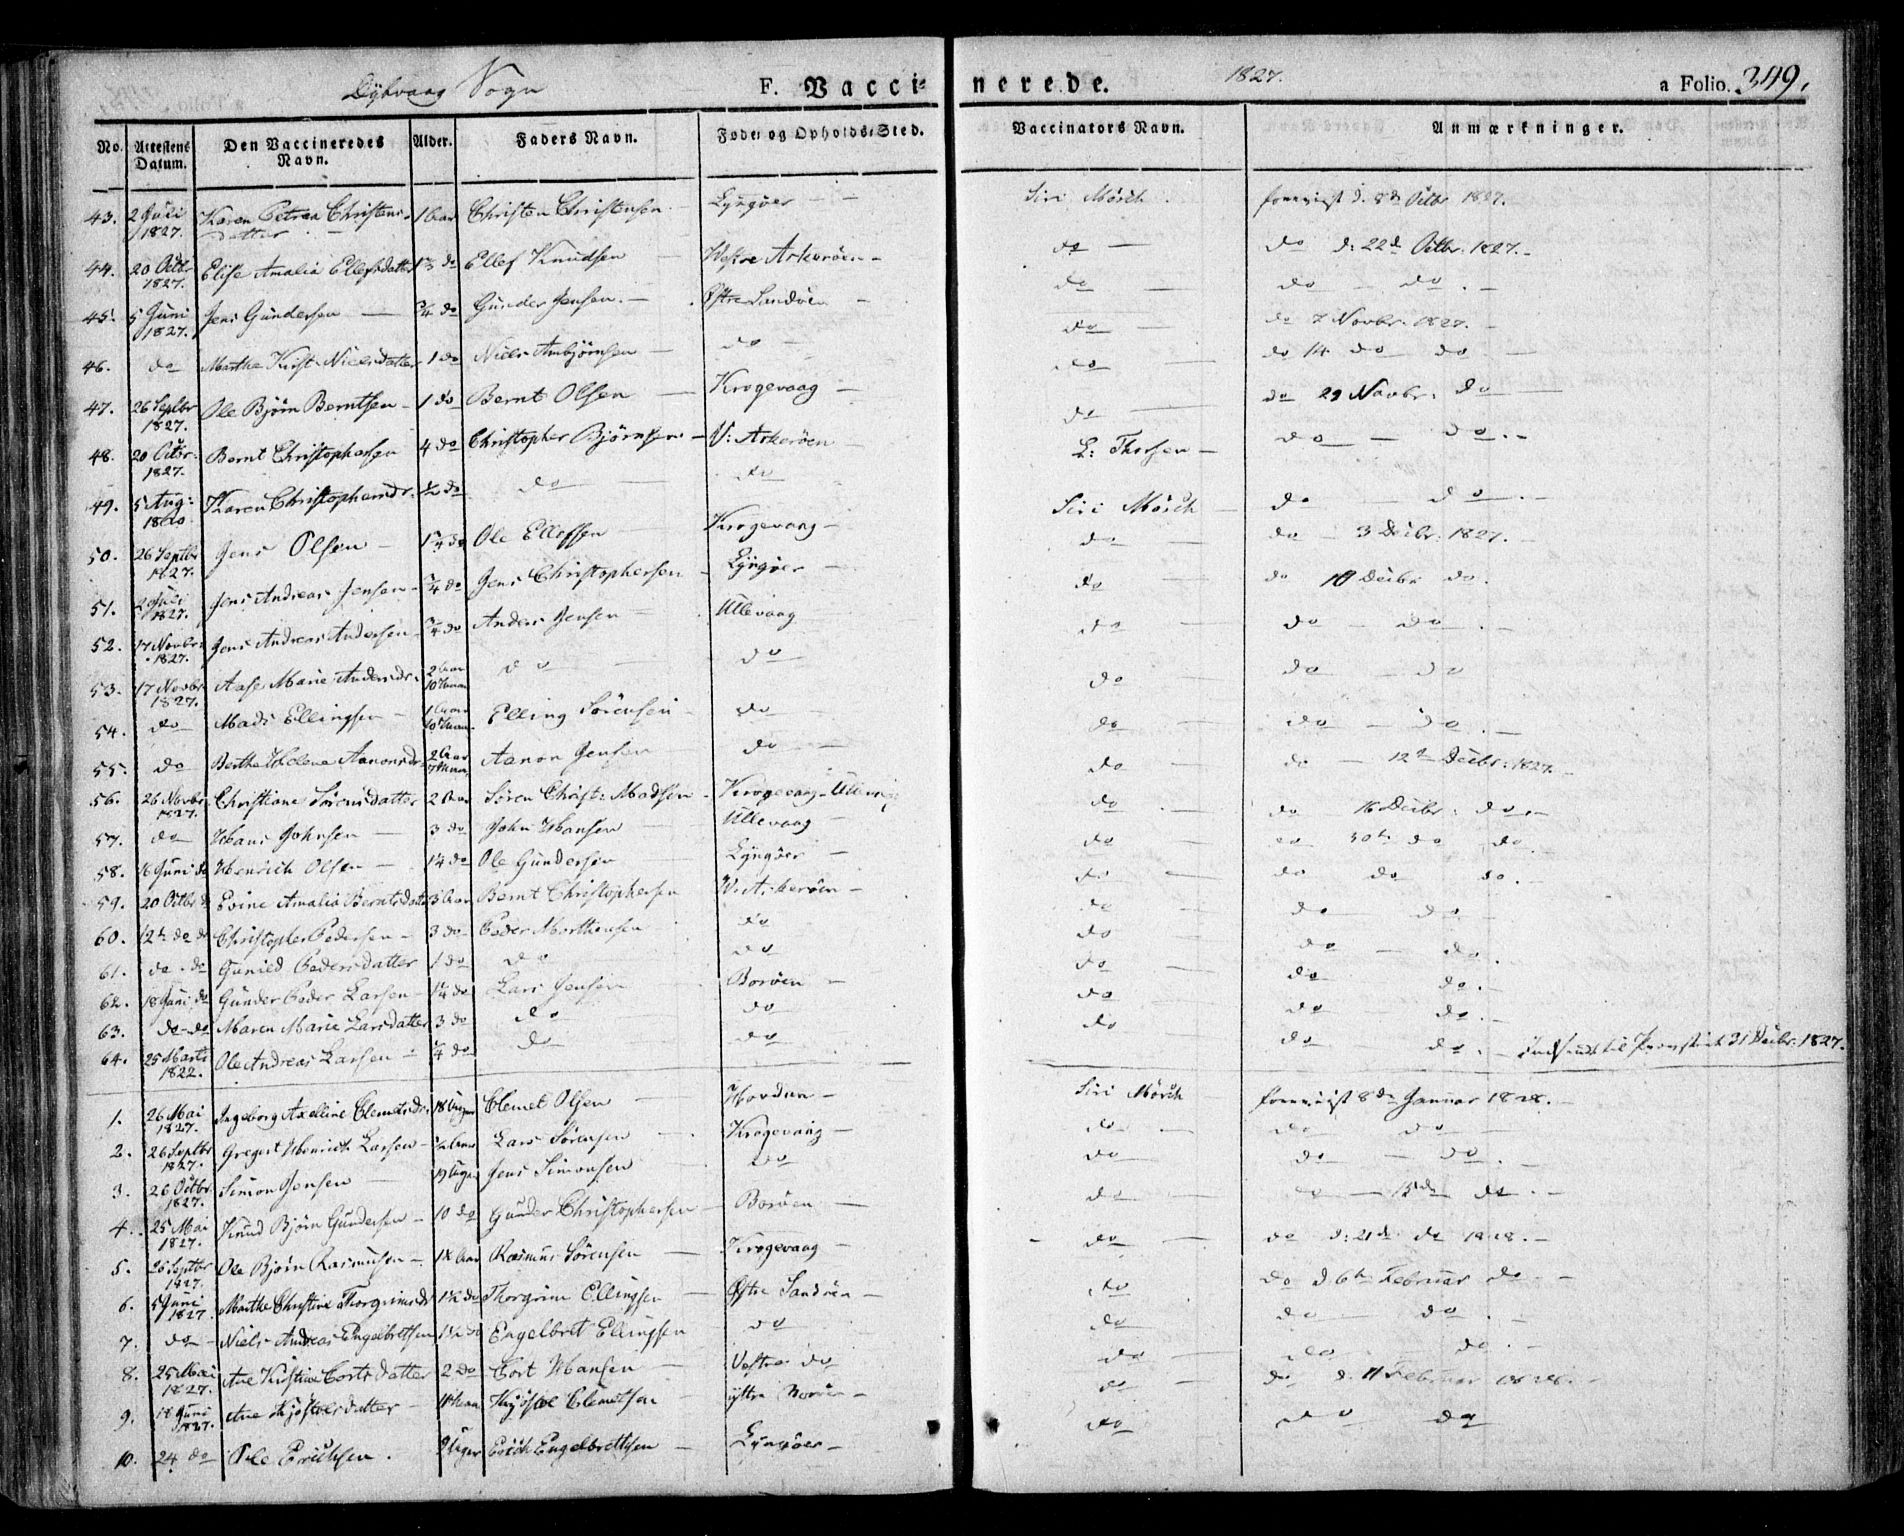 Dÿbvaag Sogn F. Vaccinerede. 1827. a Folio. 349.
No. Attestens Datum. Den Vaccineredes Navn. Alder. Faders Navn. Føde- og Opholds-Sted. Vaccinators Navn. Anmærkninger.
43. 2 Juli 1827. Karen Petrea Christensdatter 1 Aar Christen Christensen Lyngöer Siri Mörch foreviist d. 8de Octbr 1827.
44. 20 Octbr 1827. Elise Amalia Ellefsdatter do Ellef Knudsen Westre Askeröen do do d: 22de Octbr. 1827.
45. 5 Juni 1827. Jens Gundersen 3/4 do Gunder Jensen. Østre Sandöen do do do.
46. do Marthe Kirst. Nielsdatter 1 do Niels Anbjörnsen do do do 7 Novbr. 1827.
47. 26 Septbr 1827. Ole Björn Berntsen 1 do Bernt Olsen Krogevaag do do 14 do do.
48. 20 Octbr. 1827. Bernt Christophersen 4 do Christopher Björnsen V: Askeröen do do 29 Novbr. do
49. 5 Aug: Karen Christophersdr. 1/2 do do do L: Thorsen do do.
50. 26 Septbr 1827. Jens Olsen do Ole Ellefsen Krogevaag Siri Mörch do do.
51. 2 Juli 1827. Jens Andreas Jensen 3/4 do Jens Christophersen Lyngöer do do 3 Decbr. 1827.
52. 17 Novbr. 1827. Jens Andreas Andersen 3/4 do Anders Jensen Ullevaag do do 10 Decbr do.
53. 17 Novbr. 1827. Aase Marie Andersdr. 2 Aar do do do do do.
54. do Mads Ellingsen 1 Aar Elling Sörensen do do do do
55. do Berthe Helene Aanonsdr. 2 Aar Aanon Jensen do do do do.
56. 26 Novbr. 1827. Christiane Sörensdatter 2 Aar Sören Christ: Madsen Krogevaag Ullevaag do do 12te Decbr. 1827.
57. do Hans Johnsen 3 do John Hansen Ullevaag do do 16 Decbr. do.
58. 16 Juni do Henrich Olsen do Ole Gundersen Lyngöer do do 30te do do
59. 20 Octbr Evine Amalia Berntsdatter 3 Aar Bernt Christophersen V. Askeröen do do do do.
60. 12te do do Christopher Pedersen 3 do Peder Morthensen do do do do.
61. do do Gunild Pedersdatter 1 do do do do do do.
62. 18 Juni do Gunder Peder Larsen do Lars Jensen Boröen do do do.
63. do do Maren Marie Larsdatter 3 do do do do do do.
64. 25 Marts 1822. Ole Andreas Larsen do do do do do do. Indsendt til Provstiet 31 Decbr. 1827.
1. 26 Mai 1827. Ingeborg Axelline Clemetsdr. 18 Uger Clemet Olsen Hovden Siri Mörch foreviist 8de Januar 1828.
2. 26 Septbr 1827. Gregert Henrich Larsen 1/2 Aar Lars Sörensen Krogevaag do do do
3. 26 Octbr. 1827. Simon Jensen 19 Uger Jens Simonsen do do do do.
4. 25 Mai 1827. Knud Björn Gundersen 10 do Gunder Christophersen Boröen do do 15de do.
5. 26 Septbr 1827. Ole Björn Rasmusen Aar Rasmus Sörensen Krogevaag do do d: 21de do 1828.
6. 5 Juni 1827 Marthe Christine Thorgrimsdr. 1 1/2 do Thorgrim Ellingsen Østre Sandöen do do d 6te Februar do.
7. do Niels Andreas Engelbretsen do Engelbret Ellingsen do do do do.
8. 25 Mai 1827. Ane Kirstine Cortsdatter 2 do Cort Hansen Vestre do do do do.
9. 18 Juni 1827. Ane Kjöstelsdatter Aar Kjöstel Clemetsen ÿttre Boröen do do d. 11 Februar 1828.
10. 24 do Ole Erichsen. 9 Uger Erich Engelbrethsen Lyngöer do do do